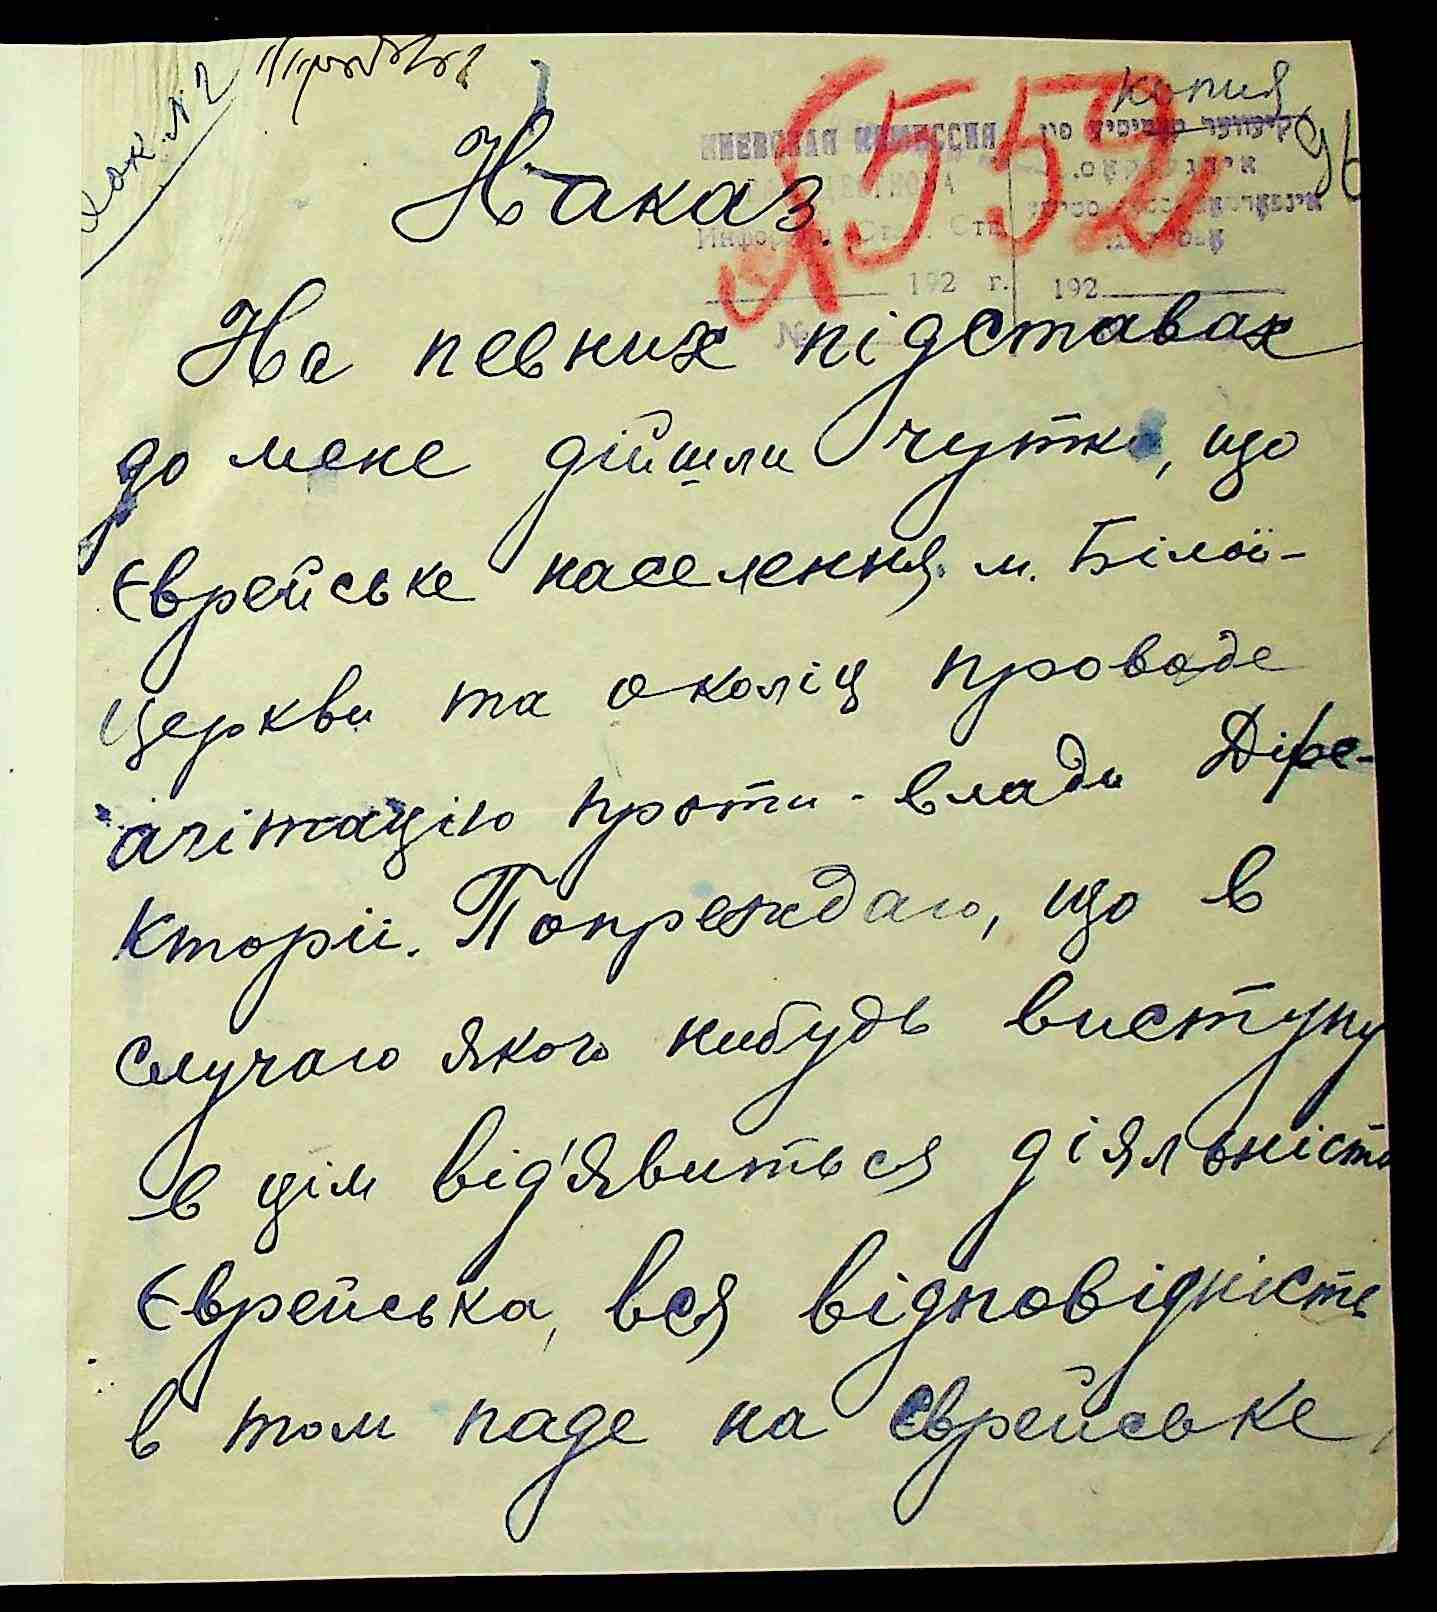 док. №2
копия
552
96
КИЕВСКАЯ КОМИССИЯ
192 г.
192
№
Наказ.
На певних підставах
до мене дійшли чутки, що
Єврейське населення м. Білої-
Церкви та околіц проваде
агітацію проти-влади Діре-
кторії. Попреждаю, що в
случаю якого нибудь виступу
в цім від'явиться діяльність
Єврейська, вся відповідність
в том паде на Єврейське